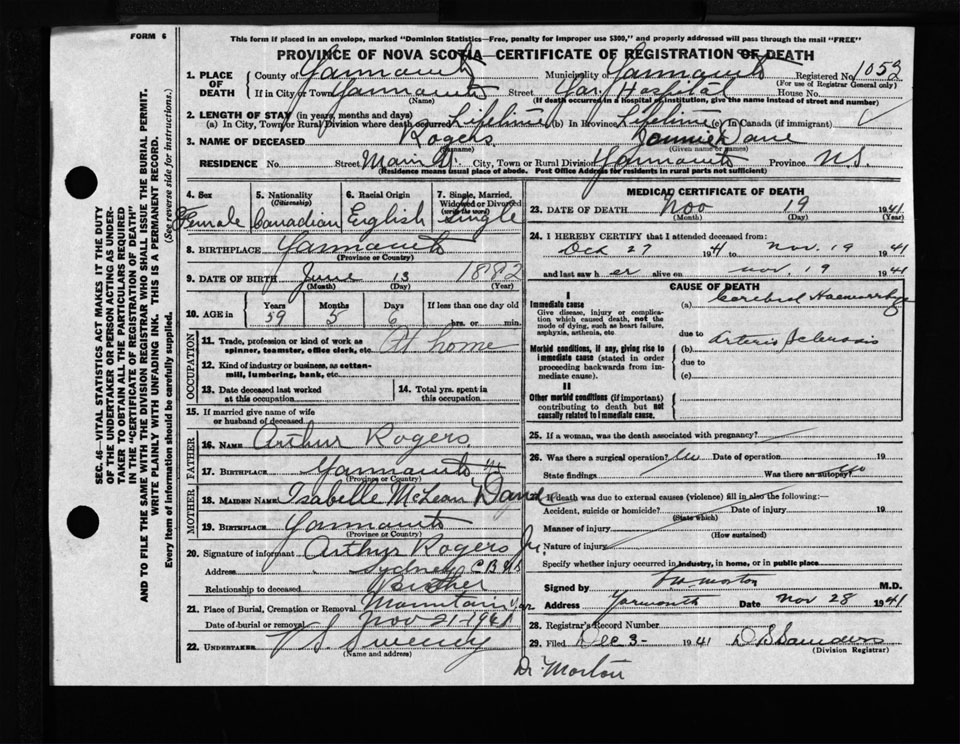 FORM 6
This form if placed in an envelope, marked "Dominion Statistics—Free, penalty for improper use $300," and properly addressed will pass through the mail "FREE"
PROVINCE OF NOVA SCOTIA—CERTIFICATE OF REGISTRATION OF DEATH
1. PLACE OF DEATH County of Yarmouth Municipality of Yarmouth Registered No. 1053
(For use of Registrar General only)
If in City or Town Yarmouth Street Yar. Hospital House No.
(Name) (If death occurred in a hospital or institution, give the name instead of street and number)
2. LENGTH OF STAY (in years, months and days)
(a) In City, Town or Rural Division where death occurred Lifetime (b) In Province Lifetime (c) In Canada (if immigrant)
3. NAME OF DECEASED Rogers Jane
(Surname) (Given name or names)
RESIDENCE No. Street Main St. City, Town or Rural Division Yarmouth Province N.S.
(Residence means usual place of abode. Post Office Address for residents in rural parts not sufficient)
4. Sex Female
5. Nationality (Citizenship) Canadian
6. Racial Origin English
7. Single, Married, Widowed or Divorced (write the word) Single
8. BIRTHPLACE Yarmouth
(Province or Country)
9. DATE OF BIRTH June 13 1882
(Month) (Day) (Year)
10. AGE in Years 59 Months 5 Days 6 If less than one day old hrs. or min.
OCCUPATION
11. Trade, profession or kind of work as spinner, teamster, office clerk, etc. At home
12. Kind of industry or business, as cotton-mill, lumbering, bank, etc.
13. Date deceased last worked at this occupation
14. Total yrs. spent in this occupation
15. If married give name of wife or husband of deceased
FATHER
16. NAME Arthur Rogers
17. BIRTHPLACE Yarmouth
(Province or Country)
MOTHER
18. MAIDEN NAME Isabelle McLean
19. BIRTHPLACE Yarmouth
(Province or Country)
20. Signature of informant Arthur Rogers Jr.
Address Sydney C B N S
Relationship to deceased Brother
21. Place of Burial, Cremation or Removal Mountain Yar
Date of burial or removal Nov 21-1941
22. UNDERTAKER V S Sweeny
(Name and address)
MEDICAL CERTIFICATE OF DEATH
23. DATE OF DEATH Nov 19 1941
(Month) (Day) (Year)
24. I HEREBY CERTIFY that I attended deceased from:
27 1941 to Nov. 19 1941
and last saw her alive on Nov. 19 1941
CAUSE OF DEATH
I
Immediate cause
Give disease, injury or complication which caused death, not the mode of dying, such as heart failure, asphyxia, asthenia, etc.
(a) Cerebral Haemorrhage
due to
Morbid conditions, if any, giving rise to immediate cause (stated in order proceeding backwards from immediate cause).
(b) Arterio Sclerosis
due to
(c)
II
Other morbid conditions (if important) contributing to death but not causally related to immediate cause.
25. If a woman, was the death associated with pregnancy?
26. Was there a surgical operation? No Date of operation 19
State findings Was there an autopsy? No
27. If death was due to external causes (violence) fill in also the following:—
Accident, suicide or homicide? Date of injury 19
(State which)
Manner of injury
(How sustained)
Nature of injury
Specify whether injury occurred in industry, in home, or in public place
Signed by Morton M.D.
Address Yarmouth Date Nov 28 1941
28. Registrar's Record Number
29. Filed Dec 3- 1941 D B Saunders
(Division Registrar)
Dr. Morton
SEC. 46—VITAL STATISTICS ACT MAKES IT THE DUTY
OF THE UNDERTAKER OR PERSON ACTING AS UNDER-
TAKER TO OBTAIN ALL THE PARTICULARS REQUIRED
IN THE "CERTIFICATE OF REGISTRATION OF DEATH"
AND TO FILE THE SAME WITH THE DIVISION REGISTRAR WHO SHALL ISSUE THE BURIAL PERMIT.
WRITE PLAINLY WITH UNFADING INK. THIS IS A PERMANENT RECORD.
Every item of information should be carefully supplied. (See reverse side for instructions.)